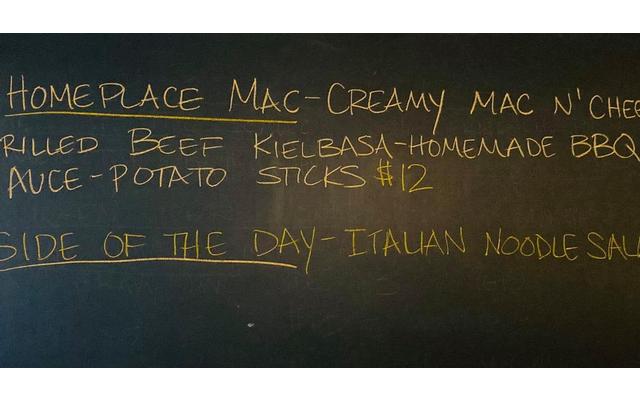 HOMEPLACE MAC-CREAMY MAC N' CHEE
RILLED BEEF KIELBASA-HOMEMADE BBQ
AUCE-POTATO STICKS $12
SIDE OF THE DAY-ITALIAN NOODLE SALA